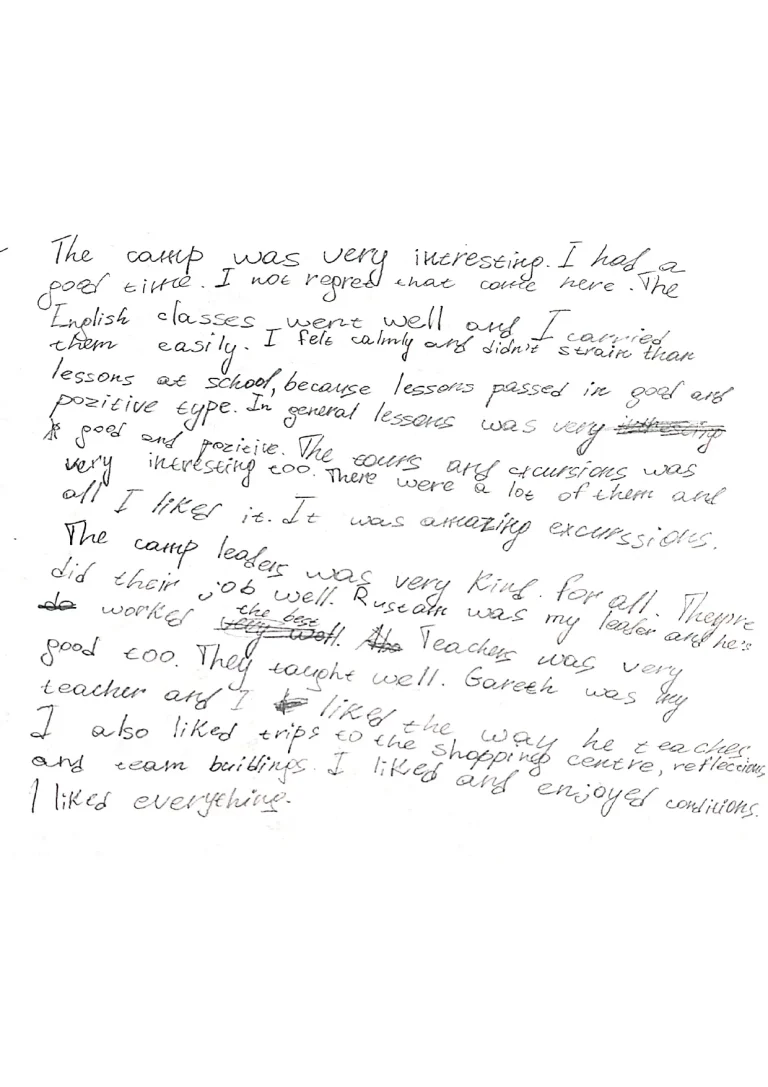 The camp was very intresting. I had a
good time. I not regred that come here. The
English classes went well and I carried
them easily. I felt calmly and didn't strain than
lessons at school, because lessons passed in good and
pozitive type. In general lessons was very
good and pozitive. The tours and excursions was
very intresting too. There were a lot of them and
all I liked it. It was amazing excurssions.
The camp leaders was very kind. for all. They're
did their job well. Rustam was my leader and he's
worked the best. Teachers was very
good too. They taught well. Gareth was my
teacher and I liked the way he teaches
I also liked trips to the shopping centre, reflections,
and team buildings. I liked and enjoyed conditions.
I liked everything.